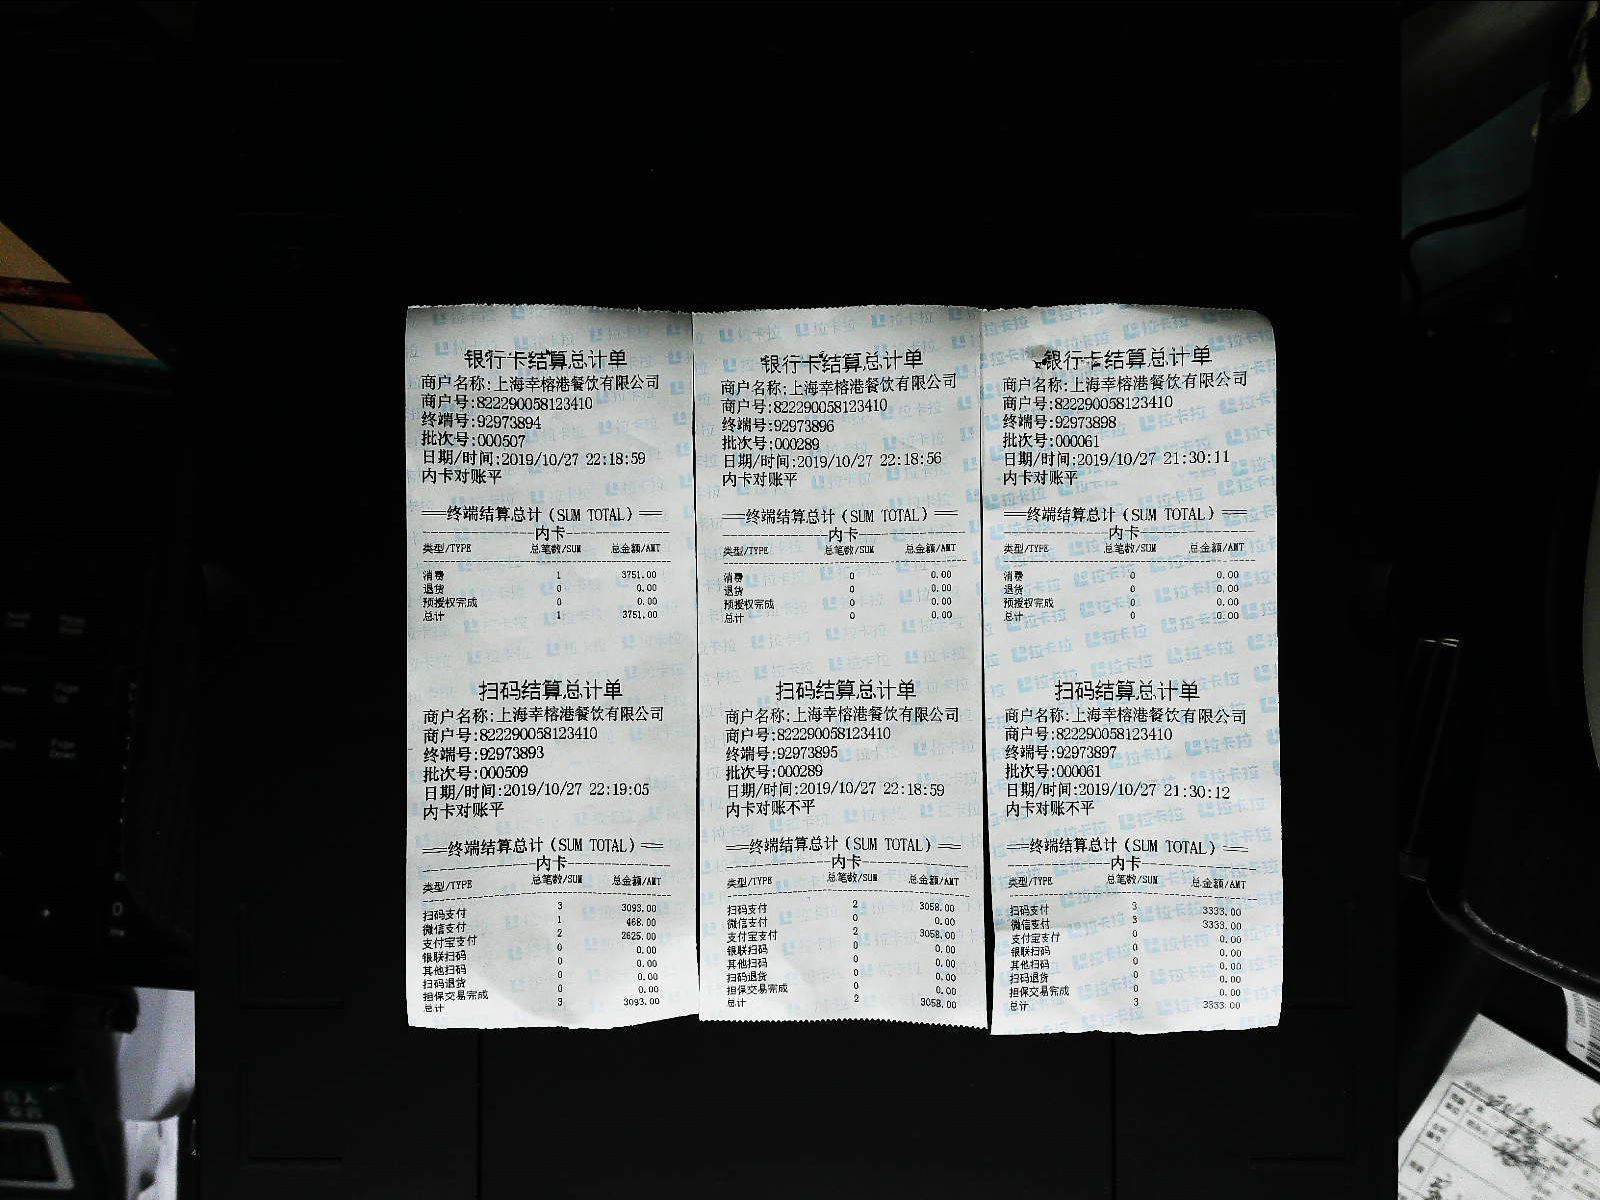 银行卡结算总计单
商户名称:上海幸榕港餐饮有限公司
商户号:822290058123410
终端号:92973894
批次号:000507
日期/时间:2019/10/27 22:18:59
内卡对账平
══终端结算总计(SUM TOTAL)══
内卡
类型/TYPE 总笔数/SUM 总金额/AMT
消费 1 3751.00
退货 0 0.00
预授权完成 0 0.00
总计 1 3751.00
扫码结算总计单
商户名称:上海幸榕港餐饮有限公司
商户号:822290058123410
终端号:92973893
批次号:000509
日期/时间:2019/10/27 22:19:05
内卡对账平
══终端结算总计(SUM TOTAL)══
内卡
类型/TYPE 总笔数/SUM 总金额/AMT
扫码支付 3 3093.00
微信支付 1 468.00
支付宝支付 2 2625.00
银联扫码 0 0.00
其他扫码 0 0.00
扫码退货 0 0.00
担保交易完成 0 0.00
总计 3 3093.00
银行卡结算总计单
商户名称:上海幸榕港餐饮有限公司
商户号:822290058123410
终端号:92973896
批次号:000289
日期/时间:2019/10/27 22:18:56
内卡对账平
══终端结算总计(SUM TOTAL)══
内卡
类型/TYPE 总笔数/SUM 总金额/AMT
消费 0 0.00
退货 0 0.00
预授权完成 0 0.00
总计 0 0.00
扫码结算总计单
商户名称:上海幸榕港餐饮有限公司
商户号:822290058123410
终端号:92973895
批次号:000289
日期/时间:2019/10/27 22:18:59
内卡对账不平
══终端结算总计(SUM TOTAL)══
内卡
类型/TYPE 总笔数/SUM 总金额/AMT
扫码支付 2 3058.00
微信支付 0 0.00
支付宝支付 2 3058.00
银联扫码 0 0.00
其他扫码 0 0.00
扫码退货 0 0.00
担保交易完成 0 0.00
总计 2 3058.00
银行卡结算总计单
商户名称:上海幸榕港餐饮有限公司
商户号:822290058123410
终端号:92973898
批次号:000061
日期/时间:2019/10/27 21:30:11
内卡对账平
══终端结算总计(SUM TOTAL)══
内卡
类型/TYPE 总笔数/SUM 总金额/AMT
消费 0 0.00
退货 0 0.00
预授权完成 0 0.00
总计 0 0.00
扫码结算总计单
商户名称:上海幸榕港餐饮有限公司
商户号:822290058123410
终端号:92973897
批次号:000061
日期/时间:2019/10/27 21:30:12
内卡对账不平
══终端结算总计(SUM TOTAL)══
内卡
类型/TYPE 总笔数/SUM 总金额/AMT
扫码支付 3 3333.00
微信支付 3 3333.00
支付宝支付 0 0.00
银联扫码 0 0.00
其他扫码 0 0.00
扫码退货 0 0.00
担保交易完成 0 0.00
总计 3 3333.00
拉卡拉
Page Up
Page Down